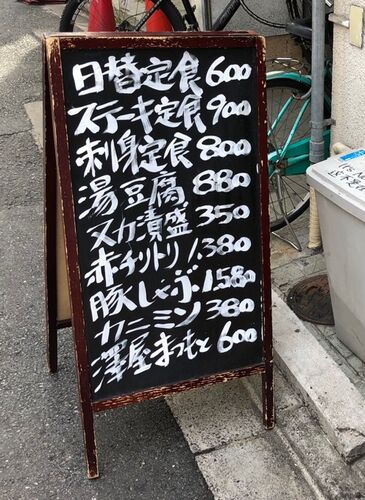 日替定食 600
ステーキ定食 900
刺身定食 800
湯豆腐 880
ヌカ漬盛 350
赤チリトリ 1.380
豚しゃぶ 1.580
カニミソ 380
澤屋まつもと 600